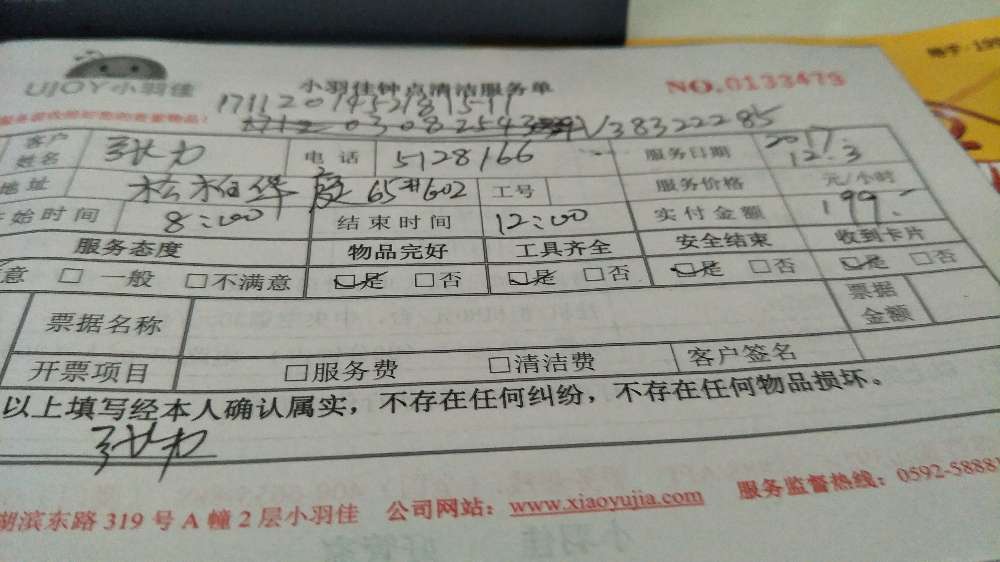 UJOY小羽佳 小羽佳钟点清洁服务单 NO.0133479
17112014521815-11
V38322285
客户姓名 张力 电话 5128166 服务日期 2017.12.3
地址 松柏华庭65#602 工号 服务价格 元/小时
始时间 8:00 结束时间 12:00 实付金额 199.-
服务态度 物品完好 工具齐全 安全结束 收到卡片
意 □ 一般 □不满意 □是 □否 □是 □否 □是 □否 □是 □否
票据名称 票据金额
开票项目 □服务费 □清洁费 客户签名
以上填写经本人确认属实，不存在任何纠纷，不存在任何物品损坏。
张力
湖滨东路 319 号 A 幢 2 层小羽佳 公司网站：www.xiaoyujia.com 服务监督热线：0592-58881